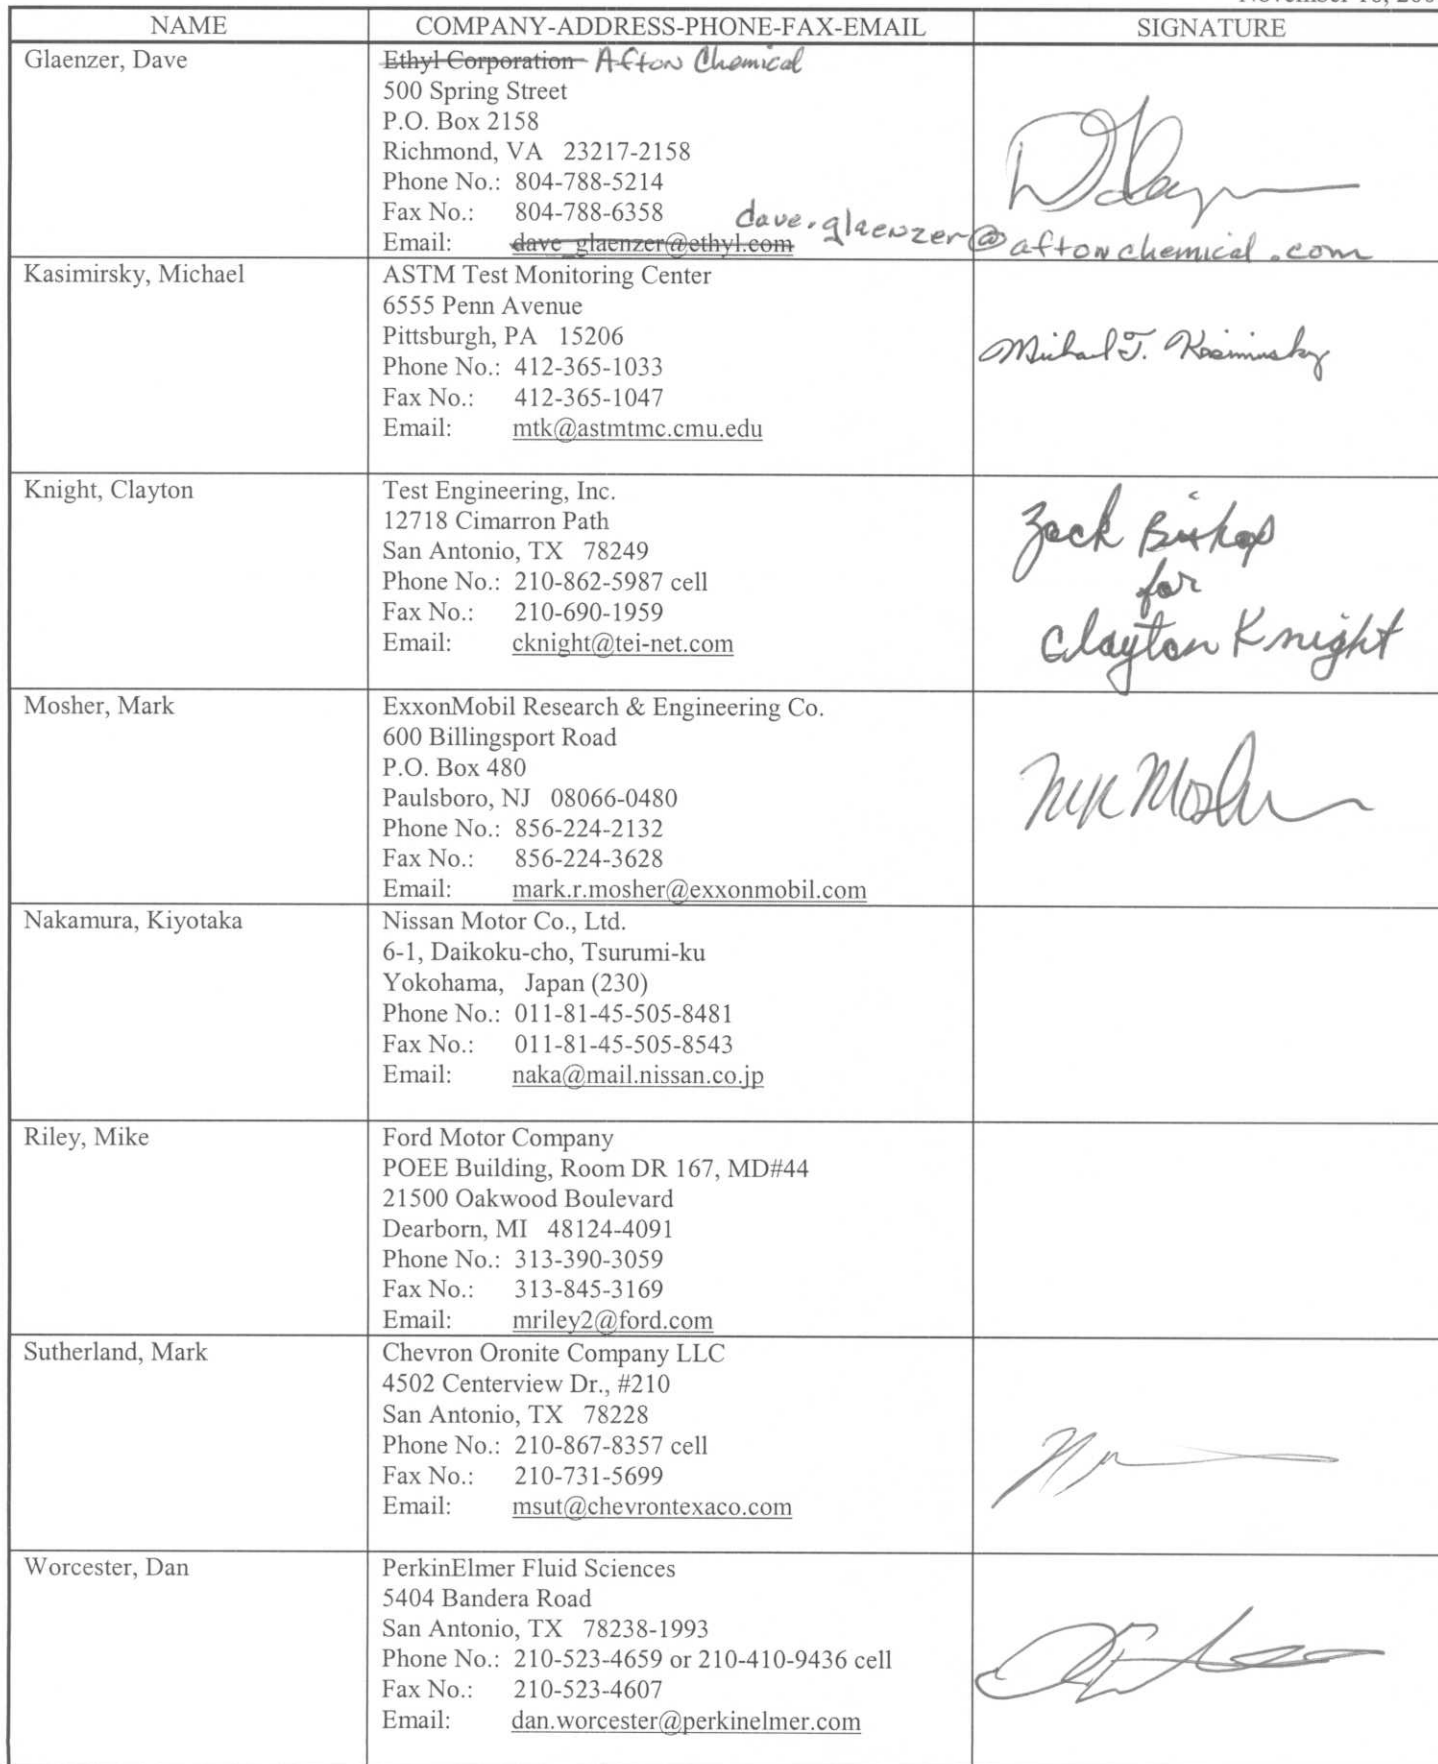 NAME
COMPANY-ADDRESS-PHONE-FAX-EMAIL
SIGNATURE
Glaenzer, Dave
Ethyl Corporation Afton Chemical
500 Spring Street
P.O. Box 2158
Richmond, VA 23217-2158
Phone No.: 804-788-5214
Fax No.: 804-788-6358
Email: dave_glaenzer@ethyl.com dave.glaenzer@aftonchemical.com
Kasimirsky, Michael
ASTM Test Monitoring Center
6555 Penn Avenue
Pittsburgh, PA 15206
Phone No.: 412-365-1033
Fax No.: 412-365-1047
Email: mtk@astmtmc.cmu.edu
Michael T. Kasimirsky
Knight, Clayton
Test Engineering, Inc.
12718 Cimarron Path
San Antonio, TX 78249
Phone No.: 210-862-5987 cell
Fax No.: 210-690-1959
Email: cknight@tei-net.com
Zack Bishop
for
Clayton Knight
Mosher, Mark
ExxonMobil Research & Engineering Co.
600 Billingsport Road
P.O. Box 480
Paulsboro, NJ 08066-0480
Phone No.: 856-224-2132
Fax No.: 856-224-3628
Email: mark.r.mosher@exxonmobil.com
Mosher
Nakamura, Kiyotaka
Nissan Motor Co., Ltd.
6-1, Daikoku-cho, Tsurumi-ku
Yokohama, Japan (230)
Phone No.: 011-81-45-505-8481
Fax No.: 011-81-45-505-8543
Email: naka@mail.nissan.co.jp
Riley, Mike
Ford Motor Company
POEE Building, Room DR 167, MD#44
21500 Oakwood Boulevard
Dearborn, MI 48124-4091
Phone No.: 313-390-3059
Fax No.: 313-845-3169
Email: mriley2@ford.com
Sutherland, Mark
Chevron Oronite Company LLC
4502 Centerview Dr., #210
San Antonio, TX 78228
Phone No.: 210-867-8357 cell
Fax No.: 210-731-5699
Email: msut@chevrontexaco.com
Worcester, Dan
PerkinElmer Fluid Sciences
5404 Bandera Road
San Antonio, TX 78238-1993
Phone No.: 210-523-4659 or 210-410-9436 cell
Fax No.: 210-523-4607
Email: dan.worcester@perkinelmer.com